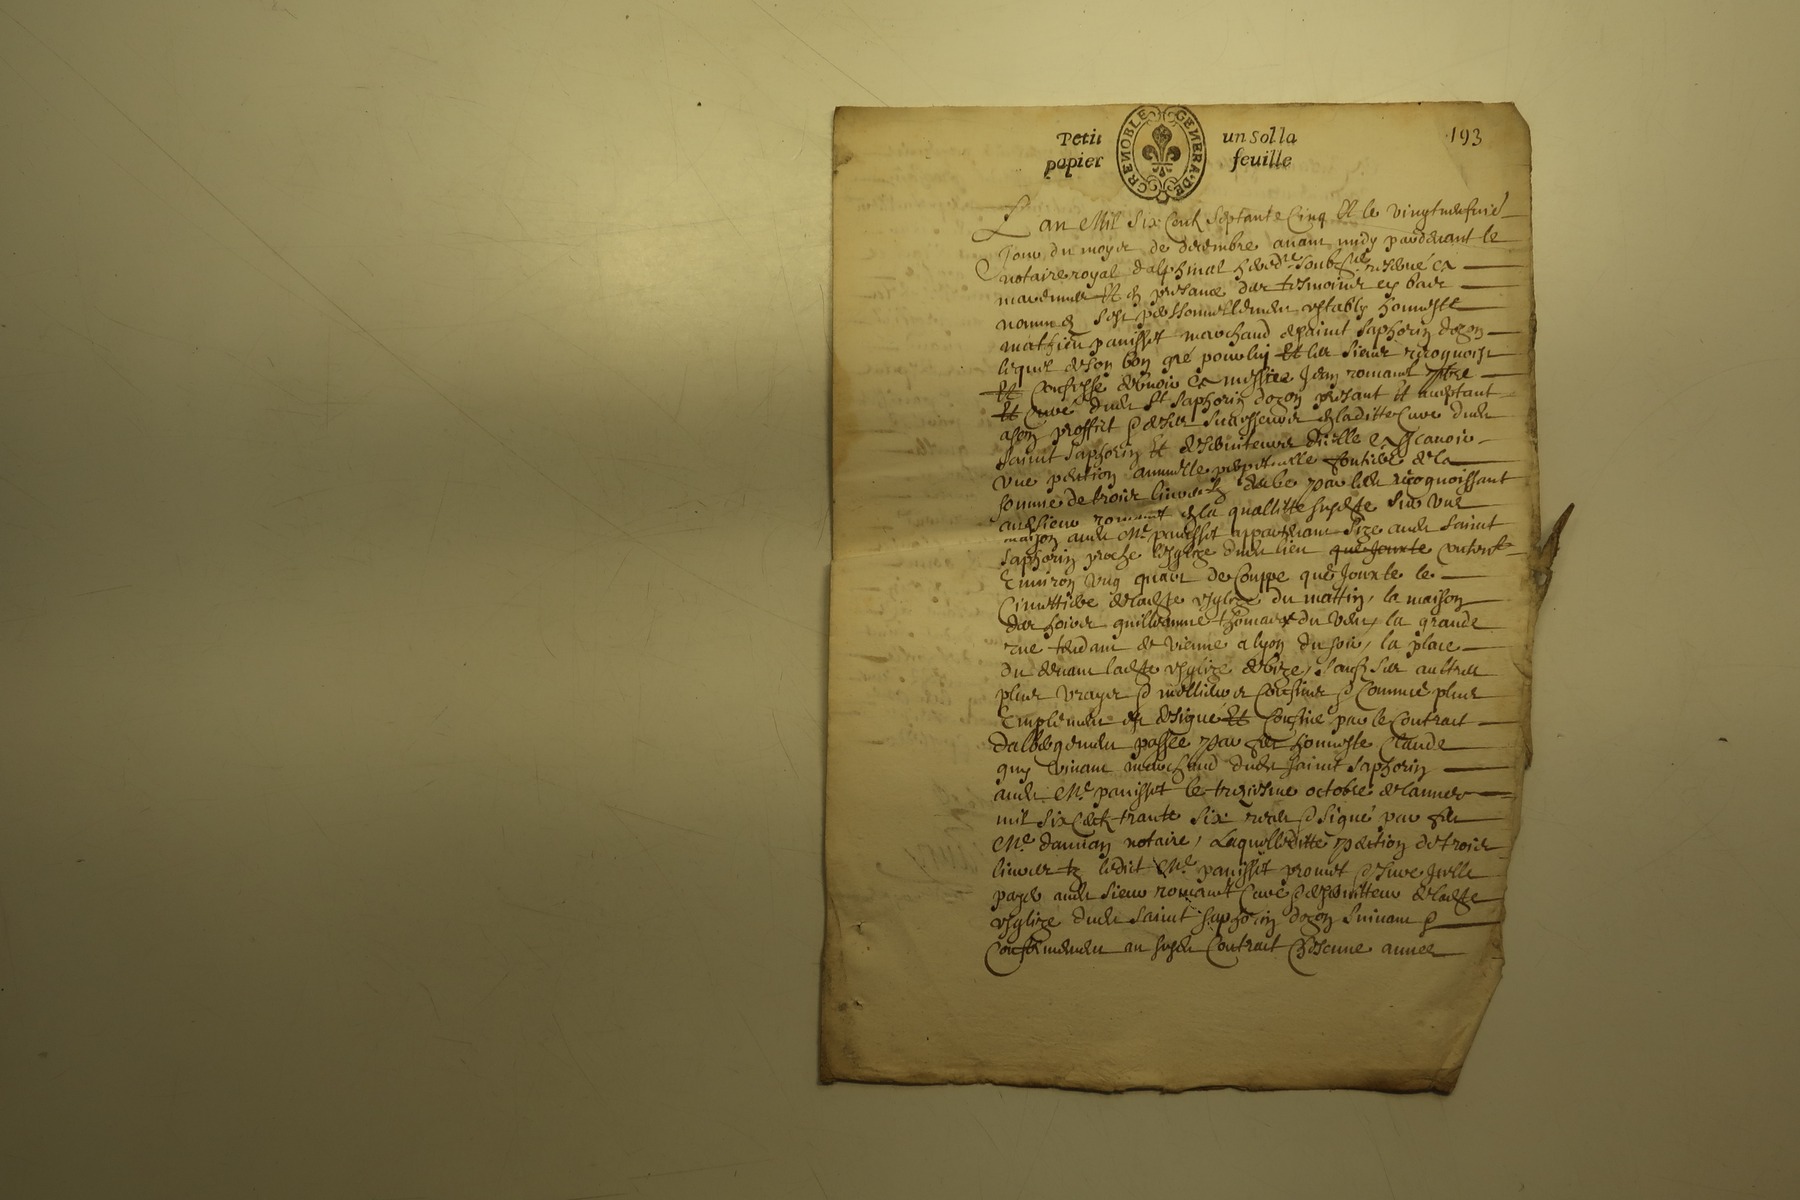 Petit papier
GRENOBLE GENERA·DE
un sol la feuille
193
Lan Mil Six Cent Septante Cinq Et le vingtneufvie
Jour du moys de decembre avant midy pardevant le
notaire royal dalphinal soubsne reservé
Et en presance des tesmoings en bas
nommes sest personnellement estably honneste
mathieu panisset marchand de saint Saphorin dozon
lequel de son bon gré pour luy Et les siens recognoist
Et Confesse debvoir a messire Jean romanet
Et Curé dudt St Saphorin dozon presant Et acceptant
a son proffict & de ses successeurs en laditte Cure dudt
saint Saphorin Et deserviteurs dicelle scavoir
une pention annuelle perpetuelle fontiere de la
somme de trois livres deube par ledt recognoissant
audt sieur romanet en la quallitte susdte sur une
maison audt Me panisset appartenant size audt saint
Saphorin proche lesglize dudt lieu que Jouxte
Environ ung quart de Couppe que Jouxte le
Cimettiere de ladte esglize du mattin, la maison
des hoirs guilleaume thomas du vent, la grande
rue tendant de vienne a lyon du soir, la place
du devant ladte esglize de bize, sauf ses aultres
plus vrayes & meilleures Confines & Comme plus
Emplement est designé Et Confiné par le Contrat
dalbergement passée par feu honneste Claude
guy vivant marchand dudt saint Saphorin
audt Me panisset le treziesme octobre de lannee
mil six Cent trante six receu & signé par feu
Me damian notaire, Laquelleditte pention de trois
livres ledict Me panisset promet & Jure Icelle
payer audt sieur romanet Curé & deserviteur de ladte
esglize dudt saint saphorin dozon suivant &
Conformement au susdt Contrat Chascune annee